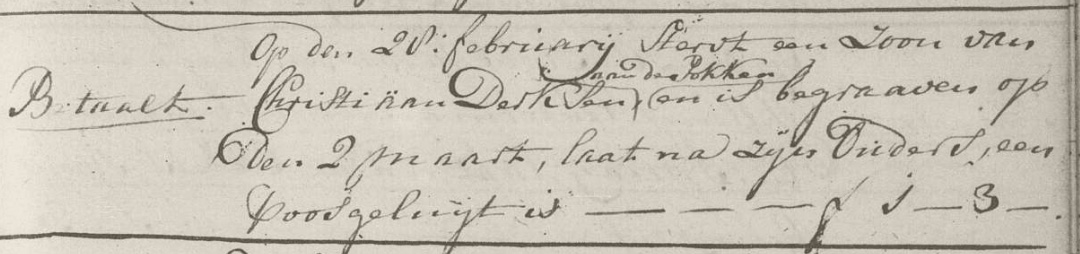 Op den 28: februarij Stervt een zoon van
aan de Pokken
Betaalt. Christiaan Derksen, en is begraaven op
den 2 maart, laat na zijn Ouders, een
Poosgeluijt is — — — — f 1 — 3 —.